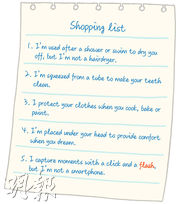 Shopping list
1. I'm used after a shower or swim to dry you
off, but I'm not a hairdryer.
2. I'm squeezed from a tube to make your teeth
clean.
3. I protect your clothes when you cook, bake or
paint.
4. I'm placed under your head to provide comfort
when you dream.
5. I capture moments with a click and a flash,
but I'm not a smartphone.
明報